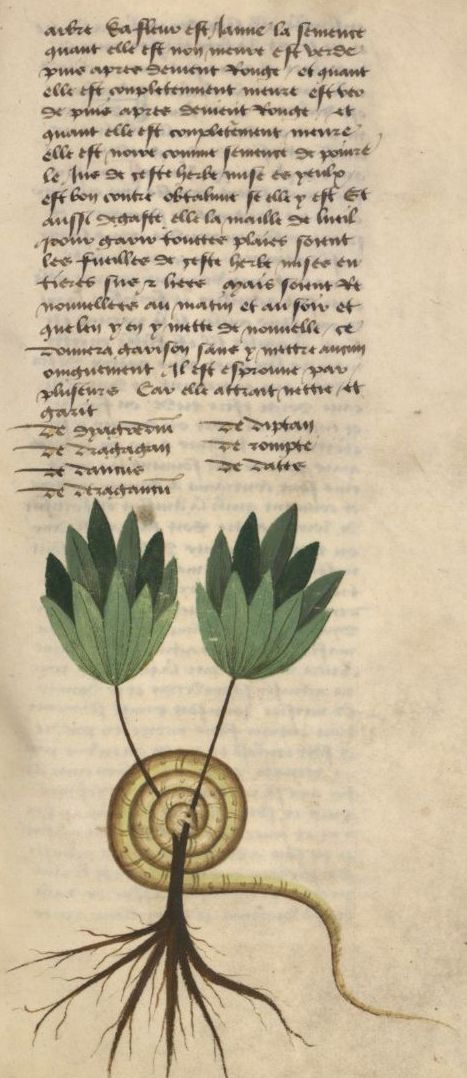 arbre Sa fleur est Jaune la semence
quant elle est non meure est verde
puis apres devient Rouge et quant
elle est completement meure est ver
de puis apres devient Rouge et
quant elle est completement meure
elle est noire comme semence de poivre
le Jus de ceste herbe mise es yeulx
est bon contre obtalmie se elle y est Et
aussi degaste elle la maille de lueil
pour garir touttes plaies soient
les fueilles de ceste herbe mises en
tieres sus et liees Mais soient Re
nouvellees au matin et au soir et
que len y en y mette de nouvelle / ce
donnera garison sans y mettre aucun
onguement / Il est esprouve par
plusieurs Car elle attrait nettie et
garit
De diagredii De diptan
De dragagan De rompte
De daucus De dates
De deragantii